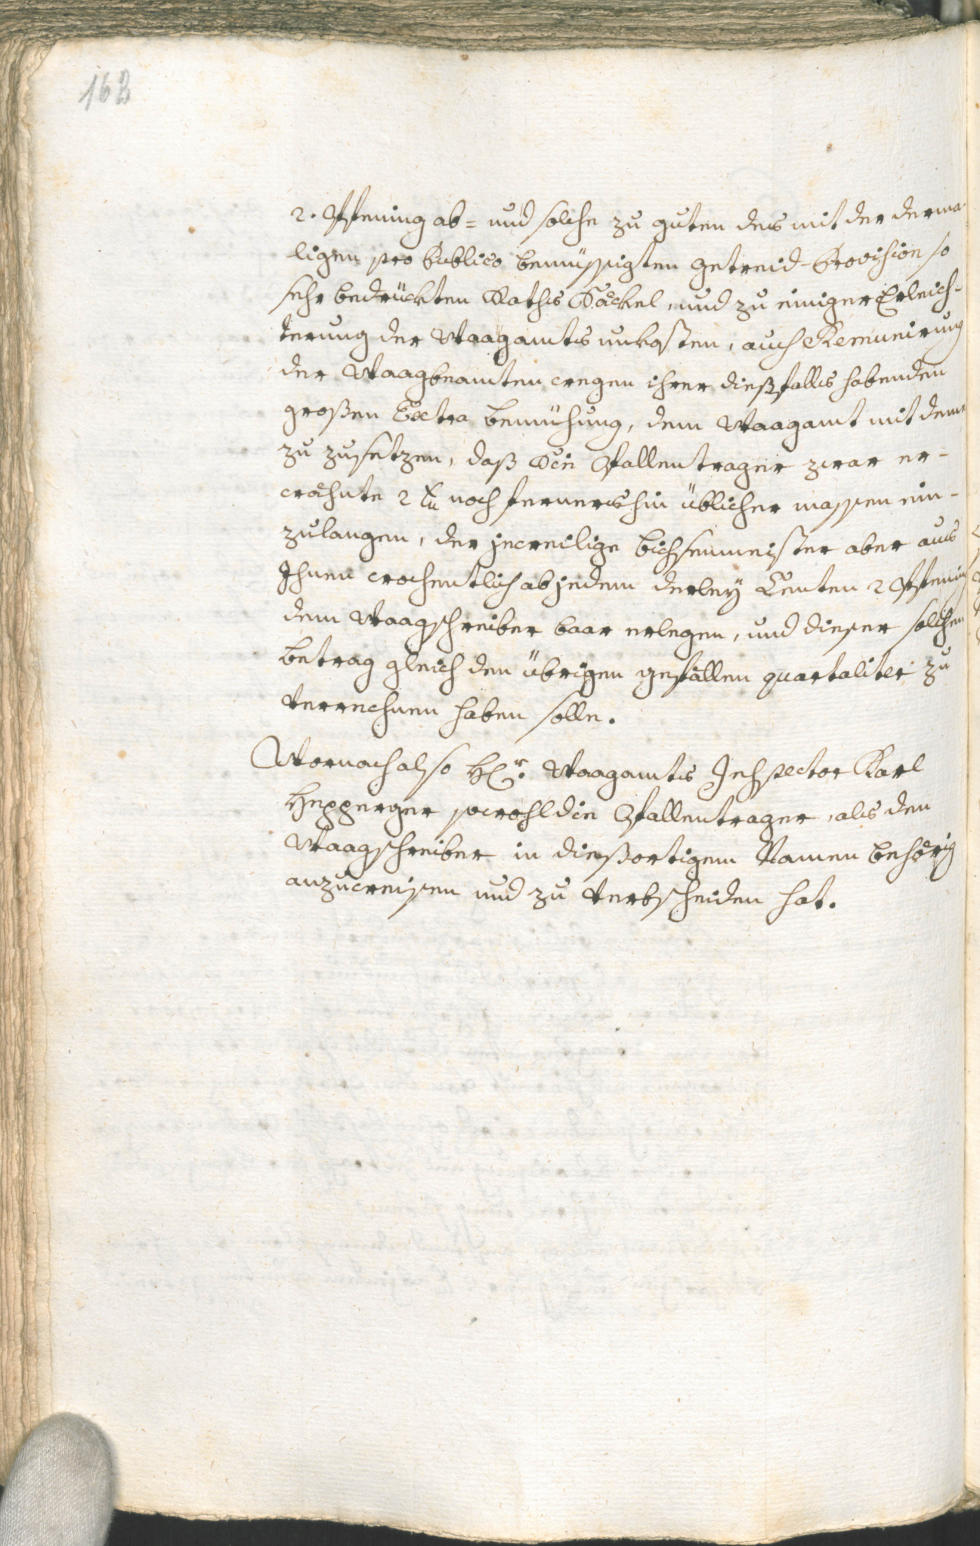 162
2. Pfening ab= und solche zu guten des mit der derma-
ligen pro Publico bemüssigten getreid-Provision so
sehr bedruckten Raths Säckel, und zu einiger Erleich-
terung der Waagamts unkosten, auch Remunerirung
der Waagbeamten wegen ihrer dießfalls habenden
großen Extra bemühung, dem Waagamt mit deme
zu zusetzen, daß die Pfallentrager zwar er-
wehnte 2 xr noch fernershin üblicher massen ein-
zulangen, der jeweilige bichsenmeister aber aus
Ihnen wochentlich ab jedem derley Centen 2 Pfening
dem Waagschreiber baar erlegen, und dieser solchen
betrag gleich den übrigen gefällen quartaliter zu
verrechnen haben solle.
Wornach also H: Waagamts Inspector Karl
Hepperger sowohl die Pfallentrager, als den
Waagschreiber in dießortigem Namen behörig
anzuweisen und zu verbscheiden hat.